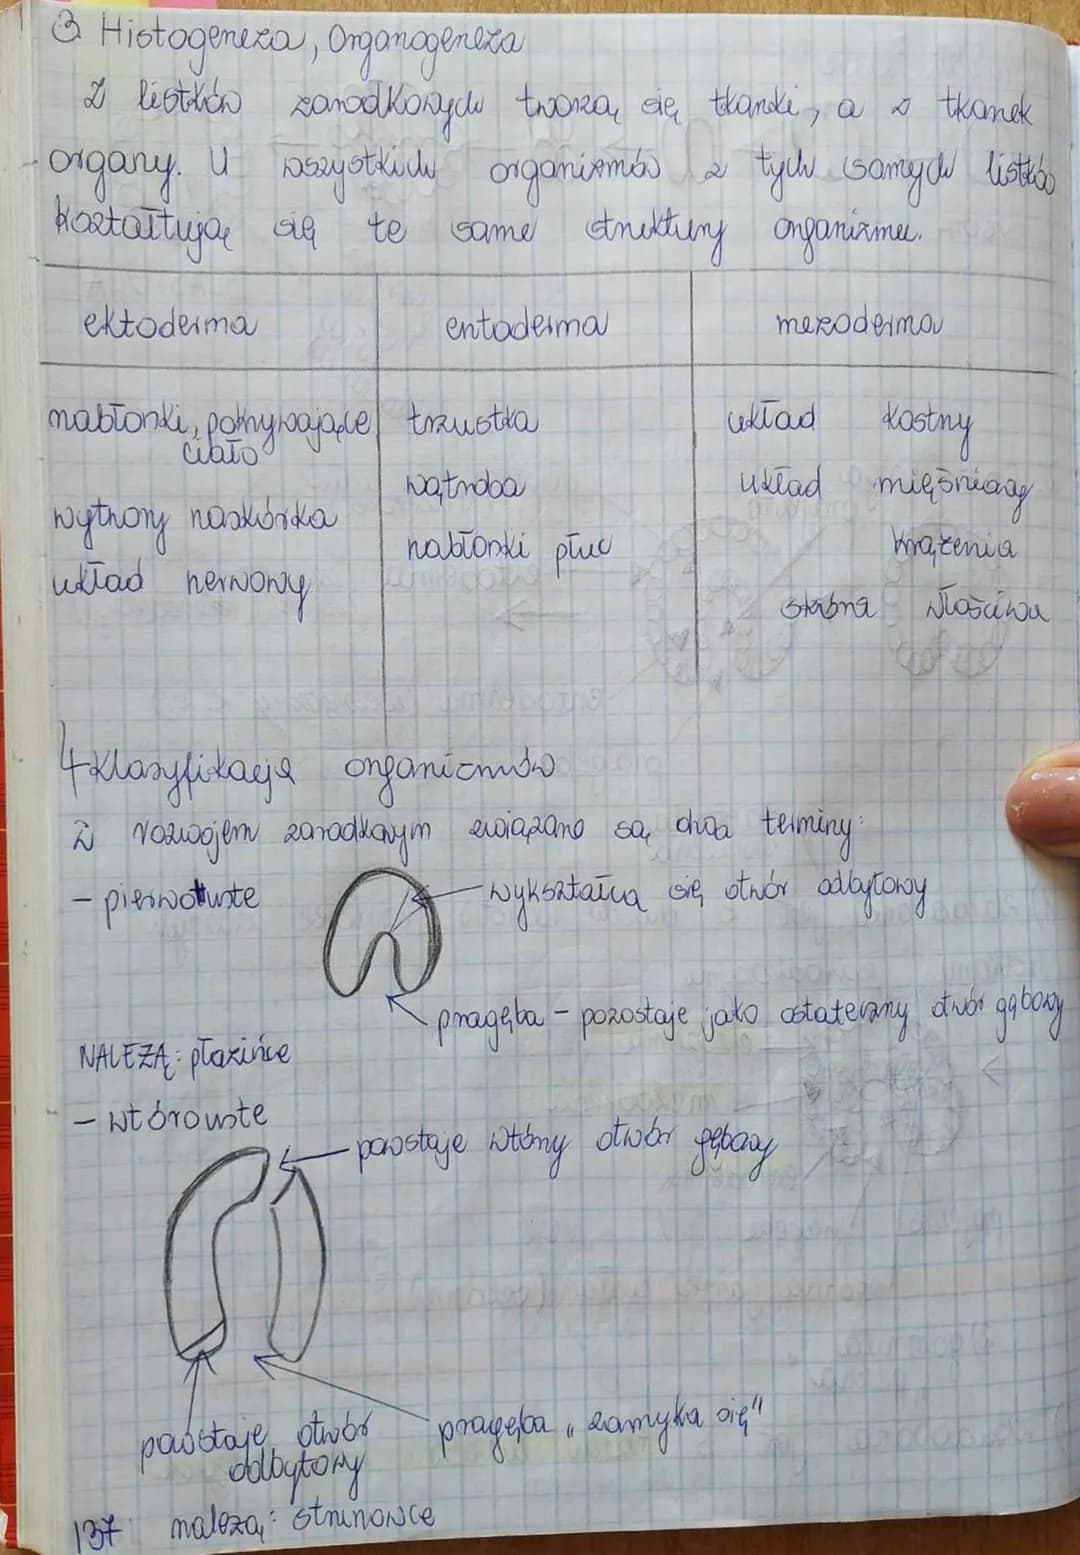 3 Histogeneza, Organogeneza
Z listków zarodkowych tworzą się tkanki, a z tkanek
organy. U wszystkich organizmów z tych samych listków
kształtują się te same struktury organizmu.
ektoderma entoderma mezoderma
nabłonki, pokrywające ciało trzustka układ kostny
wątroba układ mięśniowy
wytwory naskórka nabłonki płuc krążenia
układ nerwowy skóra właściwa
4 Klasyfikacja organizmów
Z rozwojem zarodkowym związane są dwa terminy:
- pierwouste
wykształca się otwór odbytowy
pragęba - pozostaje jako ostateczny otwór gębowy
NALEŻĄ: płazińce
- wtórouste
powstaje wtórny otwór gębowy
powstaje otwór odbytowy
pragęba „zamyka się"
należą: strunowce
137